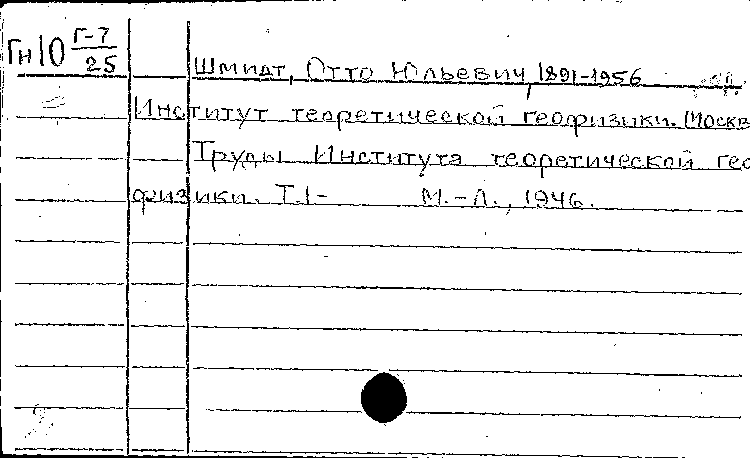 Гн10 Г-7/25
Шмидт, Отто Юльевич, 1891-1956
Институт теоретической геофизики. (Москв
Труды Института теоретической гео
физики. Т.1- М.-Л., 1946.